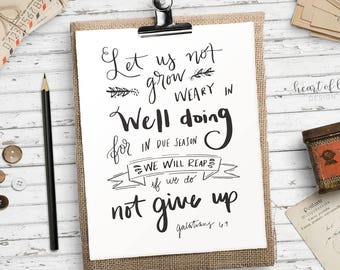 Let us not
grow
WEARY IN
Well doing
for IN DUE SEASON
WE WILL REAP
if we do
not give up
galatians 6:9
heart of
DESIGN